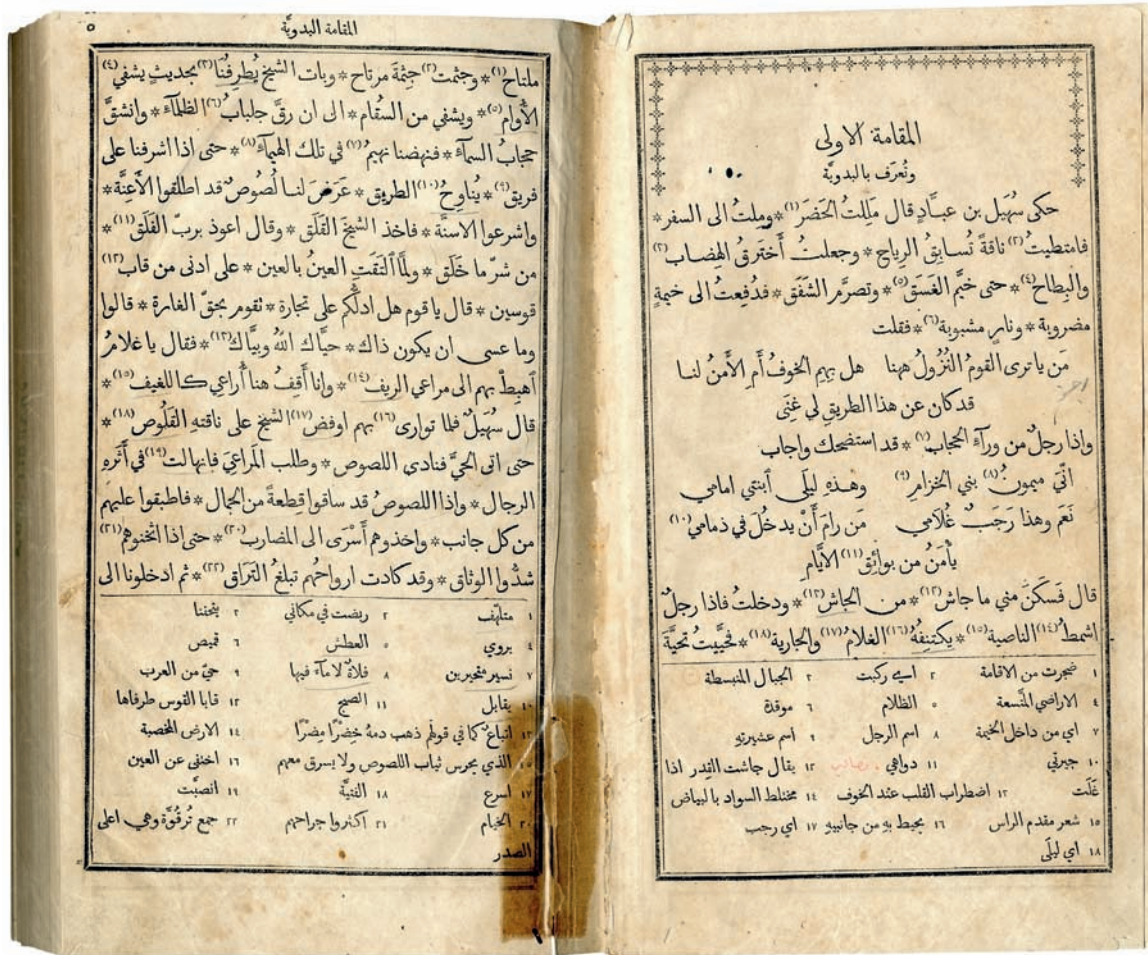 المقامة الاولى
وتُعرَف بالبدويَّة
حكى سُهَيل بن عبَّادٍ قال مَلِلتُ الحَضَرَ (١) * ومِلتُ الى السفر *
فامتطيتُ (٢) ناقةً تُسابقُ الرياح * وجعلتُ أَخترقُ الهِضاب (٣)
والبِطاح (٤) * حتى خيَّم الغَسَق (٥) * وتصرَّم الشَفَق * فدُفِعتُ الى خيمةٍ
مضروبة * ونارٍ مشبوبة (٦) * فقلت
مَن يا ترى القومُ النُزُولُ ههنا هل بِهِمِ الخوفُ أَمِ الأَمنُ لنا
قد كان عن هذا الطريقِ لي غِنَى
وإذا رجلٌ من ورآءِ الحجاب (٧) * قد استضحك واجاب
انّي ميمونُ (٨) بني الخزامِ (٩) وهذهِ ليلَى ٱبنتي امامي
نَعَم وهذا رَجَبٌ غُلامي مَن رامَ أَنْ يدخُلَ في ذمامي (١٠)
يأمَنُ من بوائِق (١١) الأيَّامِ
قال فَسكَنَ مني ما جاش (١٢) * من الجاش (١٣) * ودخلتُ فاذا رجلٌ
اشمطُ (١٤) الناصية (١٥) * يكتنِفُهُ (١٦) الغلامُ (١٧) والجارية (١٨) * فحيَّيتُ تحيَّةَ
١ ضجرت من الاقامة ٢ اي ركبت ٣ الجبال المنبسطة
٤ الاراضي المتَّسعة ٥ الظلام ٦ موقدة
٧ اي من داخل الخيمة ٨ اسم الرجل ٩ اسم عشيرتهِ
١٠ جيرتي ١١ دواهي . مصائب ١٢ يقال جاشت القِدر اذا
غَلَت ١٣ اضطراب القلب عند الخوف ١٤ مختلط السواد بالبياض
١٥ شعر مقدم الراس ١٦ يحيط بهِ من جانبيهِ ١٧ اي رجب
١٨ اي ليلَى
المقامة البدويَّة
٥
ملتاح (١) * وجثمت (٢) جِثمةَ مرتاح * وبات الشيخ يُطرِفُنا (٣) بحديثٍ يشفي (٤)
الأُوام (٥) * ويشفي من السَقام * الى ان رقَّ جلبابُ (٦) الظلمآء * وانشقَّ
حجابُ السمآء * فنهضنا نهيم (٧) في تلك الهيمآء (٨) * حتى اذا اشرفنا على
فريق (٩) * يُناوِحُ (١٠) الطريق * عَرَضَ لنا لُصُوصٌ قد اطلقوا الأَعِنَّة *
واشرعوا الاسنَّة * فاخذ الشيخَ القَلَق * وقال اعوذ بربّ الفَلَق (١١) *
من شرّ ما خَلَق * ولمَّا ٱلتَقَتِ العينُ بالعين * على ادنى من قاب (١٢)
قوسين * قال يا قوم هل ادلُّكم على تجارة * تقوم بحقّ الغارة * قالوا
وما عسى ان يكون ذاك * حيَّاك اللهُ وبيَّاك (١٣) * فقال يا غلامُ
ٱهبِطْ بهم الى مراعي الريف (١٤) * وانا أَقِفُ هنا أُراعي كاللغيف (١٥) *
قال سُهَيلٌ فلما توارى (١٦) بهم اوفض (١٧) الشيخ على ناقتهِ القَلُوص (١٨) *
حتى اتى الحيَّ فنادى اللصوص * وطلب المَراعيَ فانهالت (١٩) في أَثَرِهِ
الرجال * وإذا اللصوصُ قد ساقوا قِطعةً من الجمال * فاطبقوا عليهم
من كل جانب * واخذوهم أَسْرَى الى المضارب (٢٠) * حتى اذا اثخنوهم (٢١)
شدُّوا الوثاق * وقد كادت ارواحُهم تبلغُ التَرَاق (٢٢) * ثم ادخلونا الى
١ متلهّف ٢ ربضت في مكاني ٣ يتحفنا
٤ يروي ٥ العطش ٦ قميص
٧ نسير متحيرين ٨ فلاةٌ لا مآءَ فيها ٩ حيّ من العرب
١٠ يقابل ١١ الصبح ١٢ قابا القوس طرفاها
١٣ اتباعٌ كما في قولهم ذهب دمهُ خِضْرًا مِضْرًا ١٤ الارض المخصبة
١٥ الذي يحرس ثياب اللصوص ولا يسرق معهم ١٦ اختفى عن العين
١٧ اسرع ١٨ الفتيَّة ١٩ انصبَّت
٢٠ الخيام ٢١ اكثروا جراحهم ٢٢ جمع تُرقُوَة وهي اعلى
الصدر